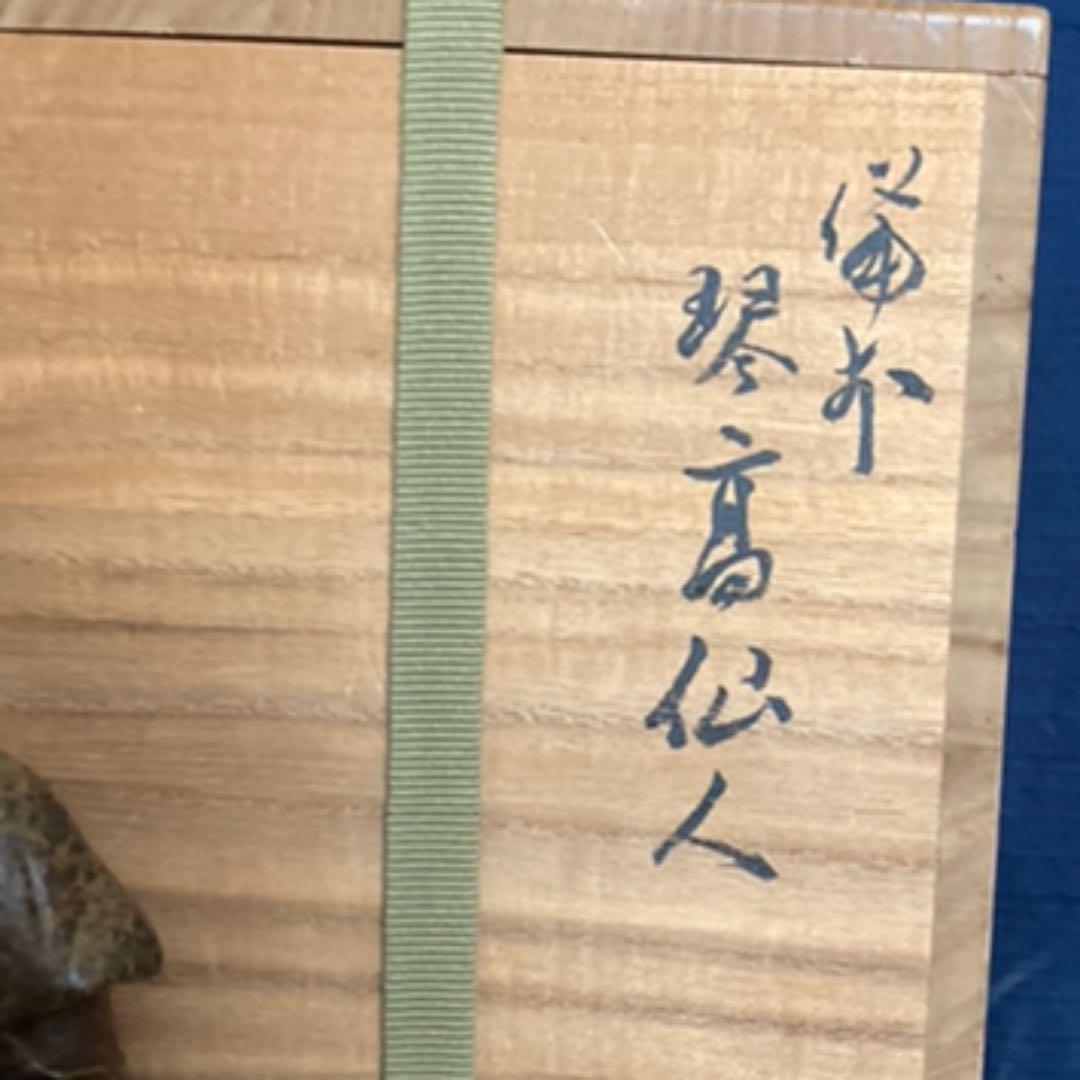 備前
琴高仙人